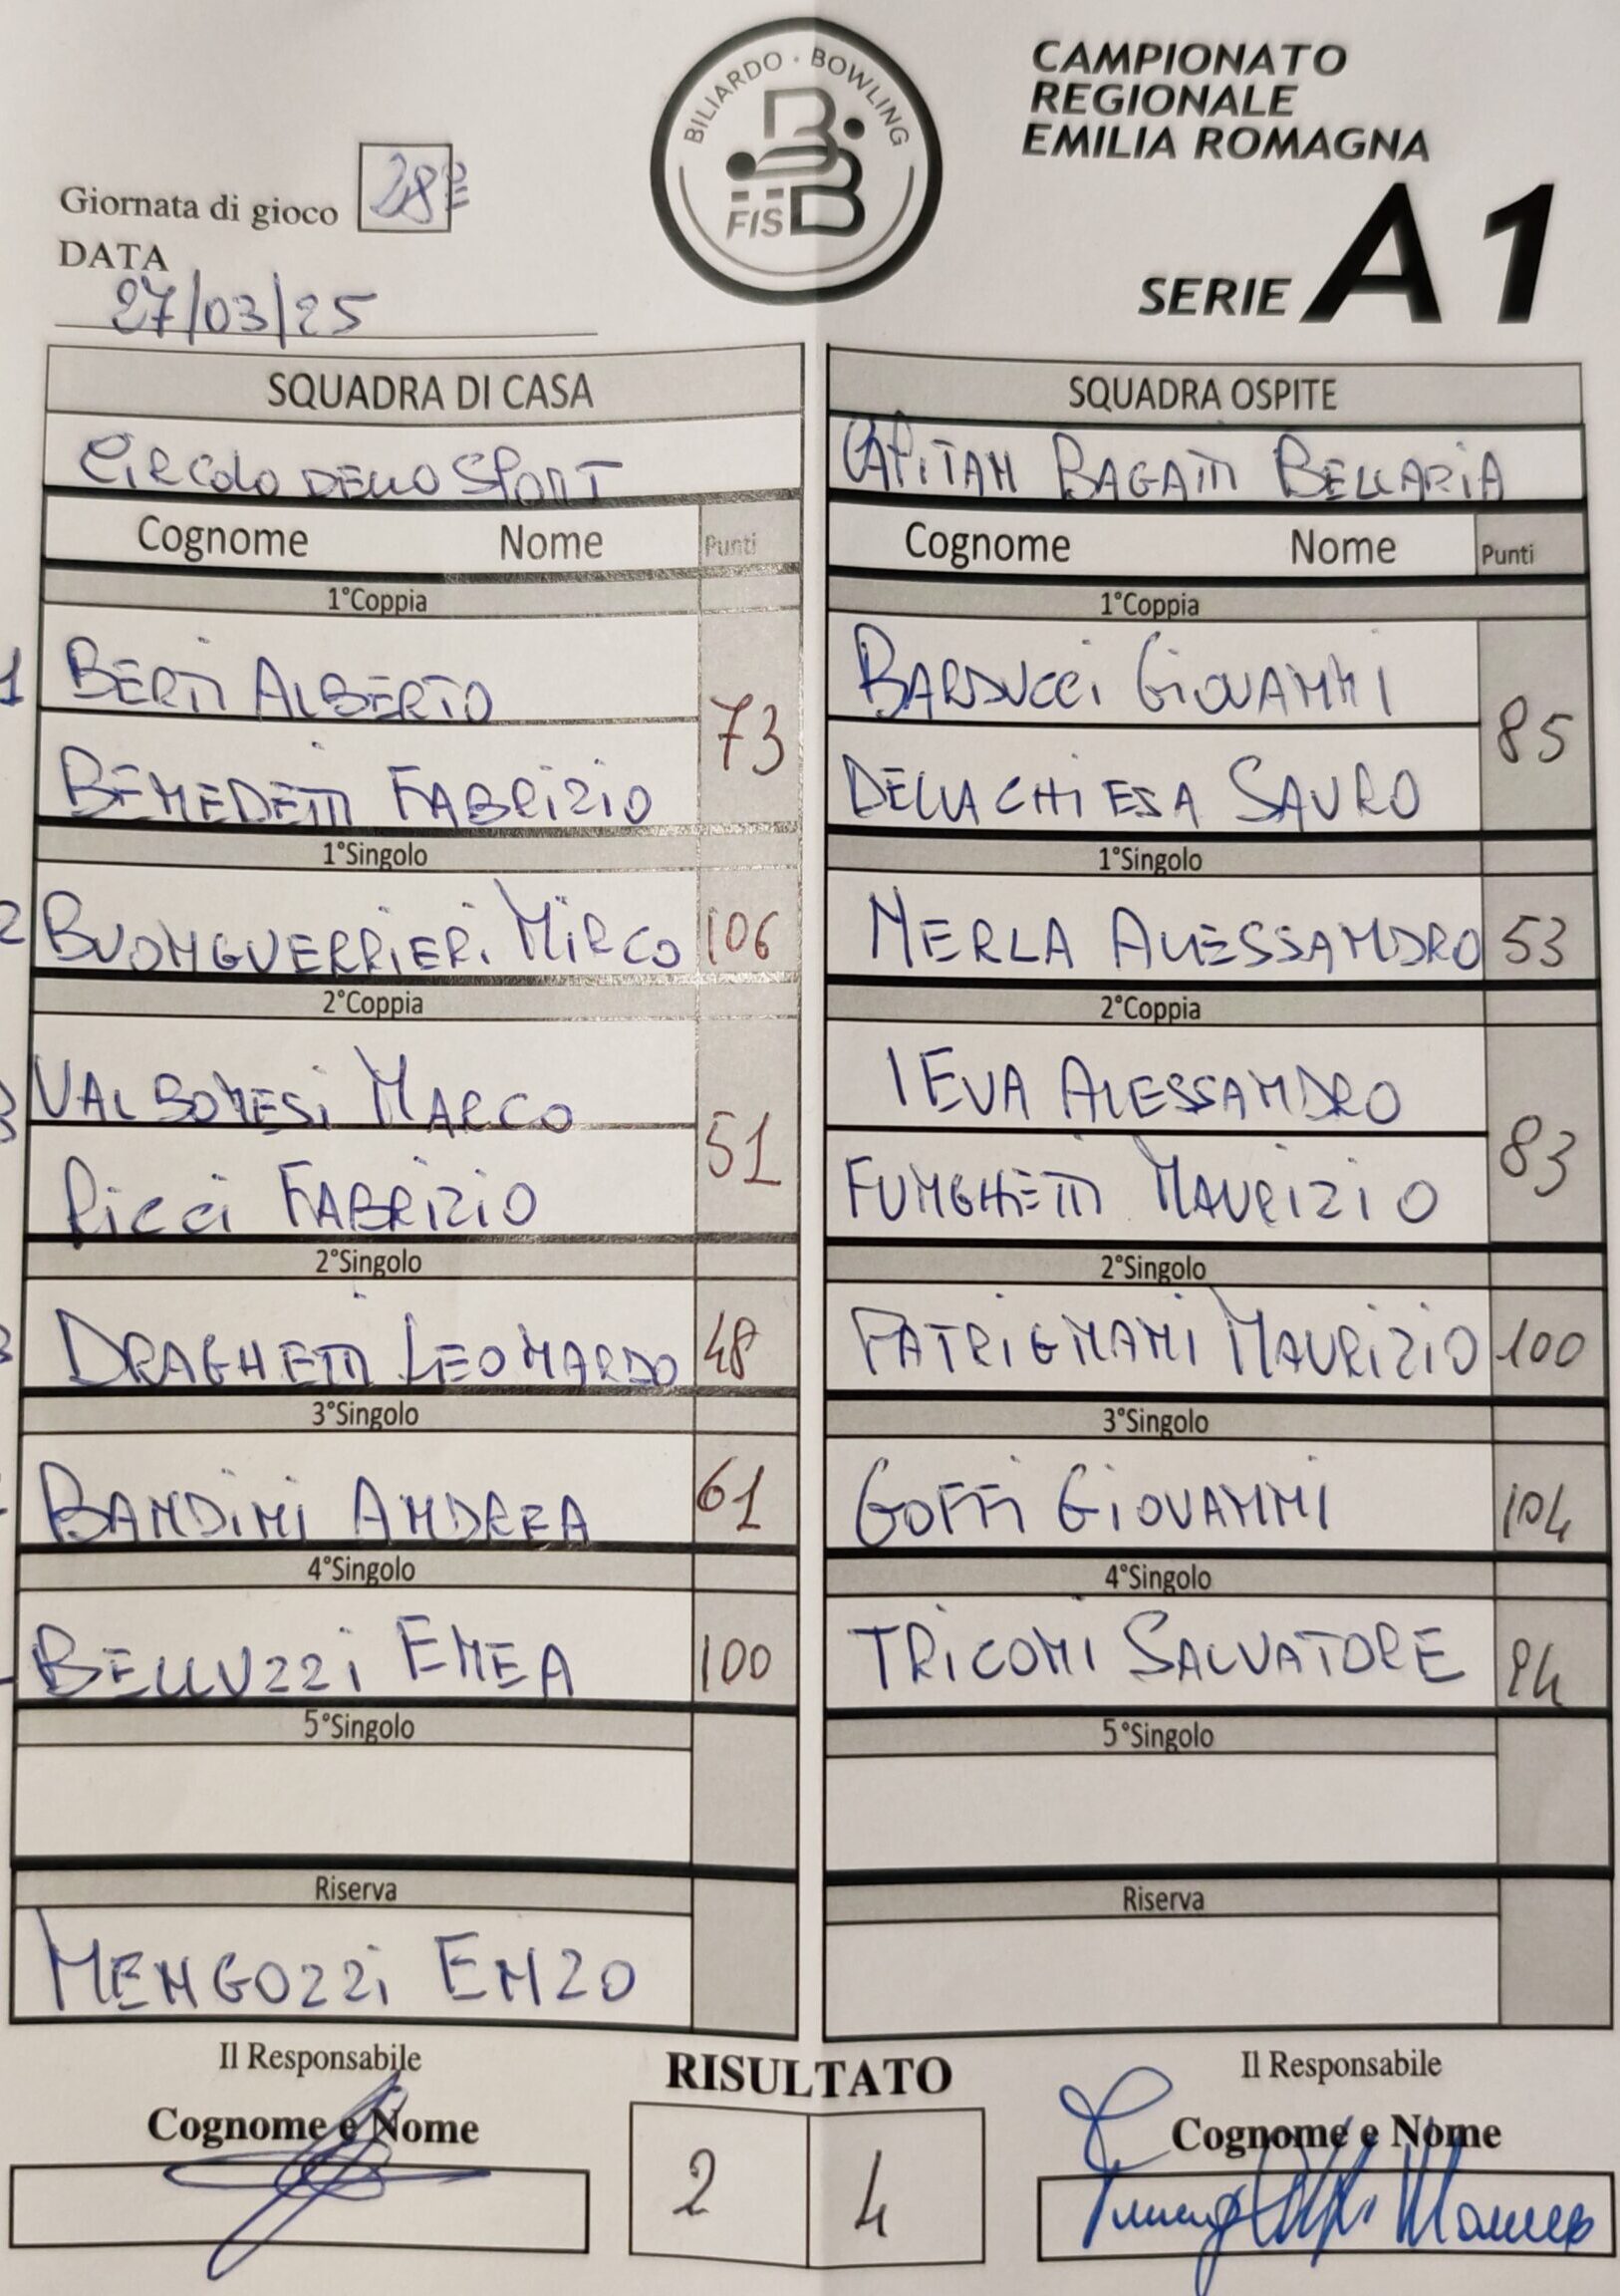 BILIARDO · BOWLING
FISBB
CAMPIONATO
REGIONALE
EMILIA ROMAGNA
SERIE A1
Giornata di gioco 28ª
DATA
27/03/25
SQUADRA DI CASA
CIRCOLO DELLO SPORT
Cognome Nome Punti
1°Coppia
1 BERTI ALBERTO
73
BENEDETTI FABRIZIO
1°Singolo
2 BUONGUERRIERI MIRCO 106
2°Coppia
VALBONESI MARCO
51
RICCI FABRIZIO
2°Singolo
DRAGHETTI LEONARDO 48
3°Singolo
BANDINI ANDREA 61
4°Singolo
BELLUZZI ENEA 100
5°Singolo
Riserva
MENGOZZI ENZO
Il Responsabile
Cognome e Nome
SQUADRA OSPITE
CAPITAN BAGATTI BELLARIA
Cognome Nome Punti
1°Coppia
BARDUCCI GIOVANNI
85
DELLACHIESA SAURO
1°Singolo
MERLA ALESSANDRO 53
2°Coppia
IEVA ALESSANDRO
83
FUNGHETTI MAURIZIO
2°Singolo
PATRIGNANI MAURIZIO 100
3°Singolo
GOFFI GIOVANNI 104
4°Singolo
TRICOMI SALVATORE 94
5°Singolo
Riserva
Il Responsabile
Cognome e Nome
RISULTATO
2 4